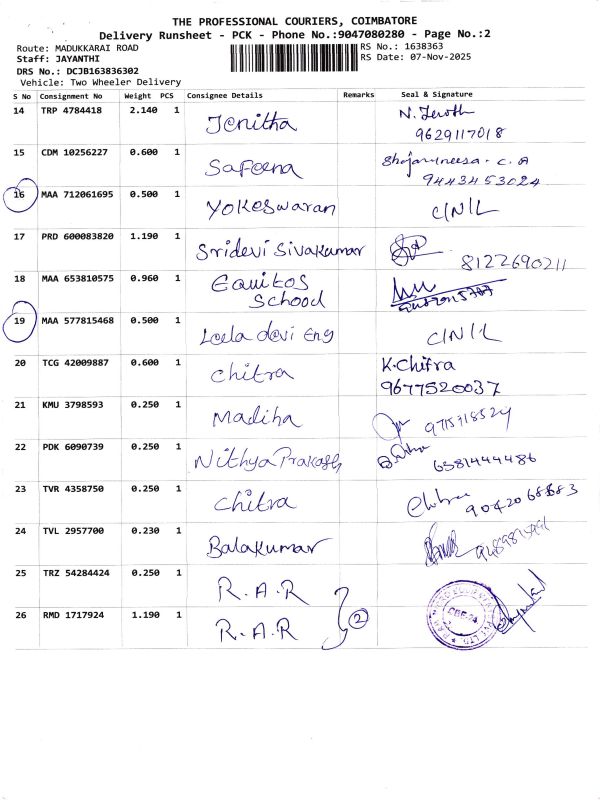 THE PROFESSIONAL COURIERS, COIMBATORE
Delivery Runsheet - PCK - Phone No.:9047080280 - Page No.:2
Route: MADUKKARAI ROAD
Staff: JAYANTHI
DRS No.: DCJB163836302
Vehicle: Two Wheeler Delivery
RS No.: 1638363
RS Date: 07-Nov-2025
S No Consignment No Weight PCS Consignee Details Remarks Seal & Signature
14 TRP 4784418 2.140 1 Jenitha
9629117018
15 CDM 10256227 0.600 1 Safeena C.A
9443453024
16 MAA 712061695 0.500 1 Yokeswaran C/N/L
17 PRD 600083820 1.190 1 Sridevi Sivakumar
8122690211
18 MAA 653810575 0.960 1 Equitos
School
19 MAA 577815468 0.500 1 Leela devi Eng C/N/L
20 TCG 42009887 0.600 1 Chitra K.Chitra
9677520037
21 KMU 3798593 0.250 1 Madiha 9715718524
22 PDK 6090739 0.250 1 Nithya Prakash 6381444486
23 TVR 4358750 0.250 1 Chitra Chitra
24 TVL 2957700 0.230 1 Balakumar
25 TRZ 54284424 0.250 1 R.A.R
26 RMD 1717924 1.190 1 R.A.R
2